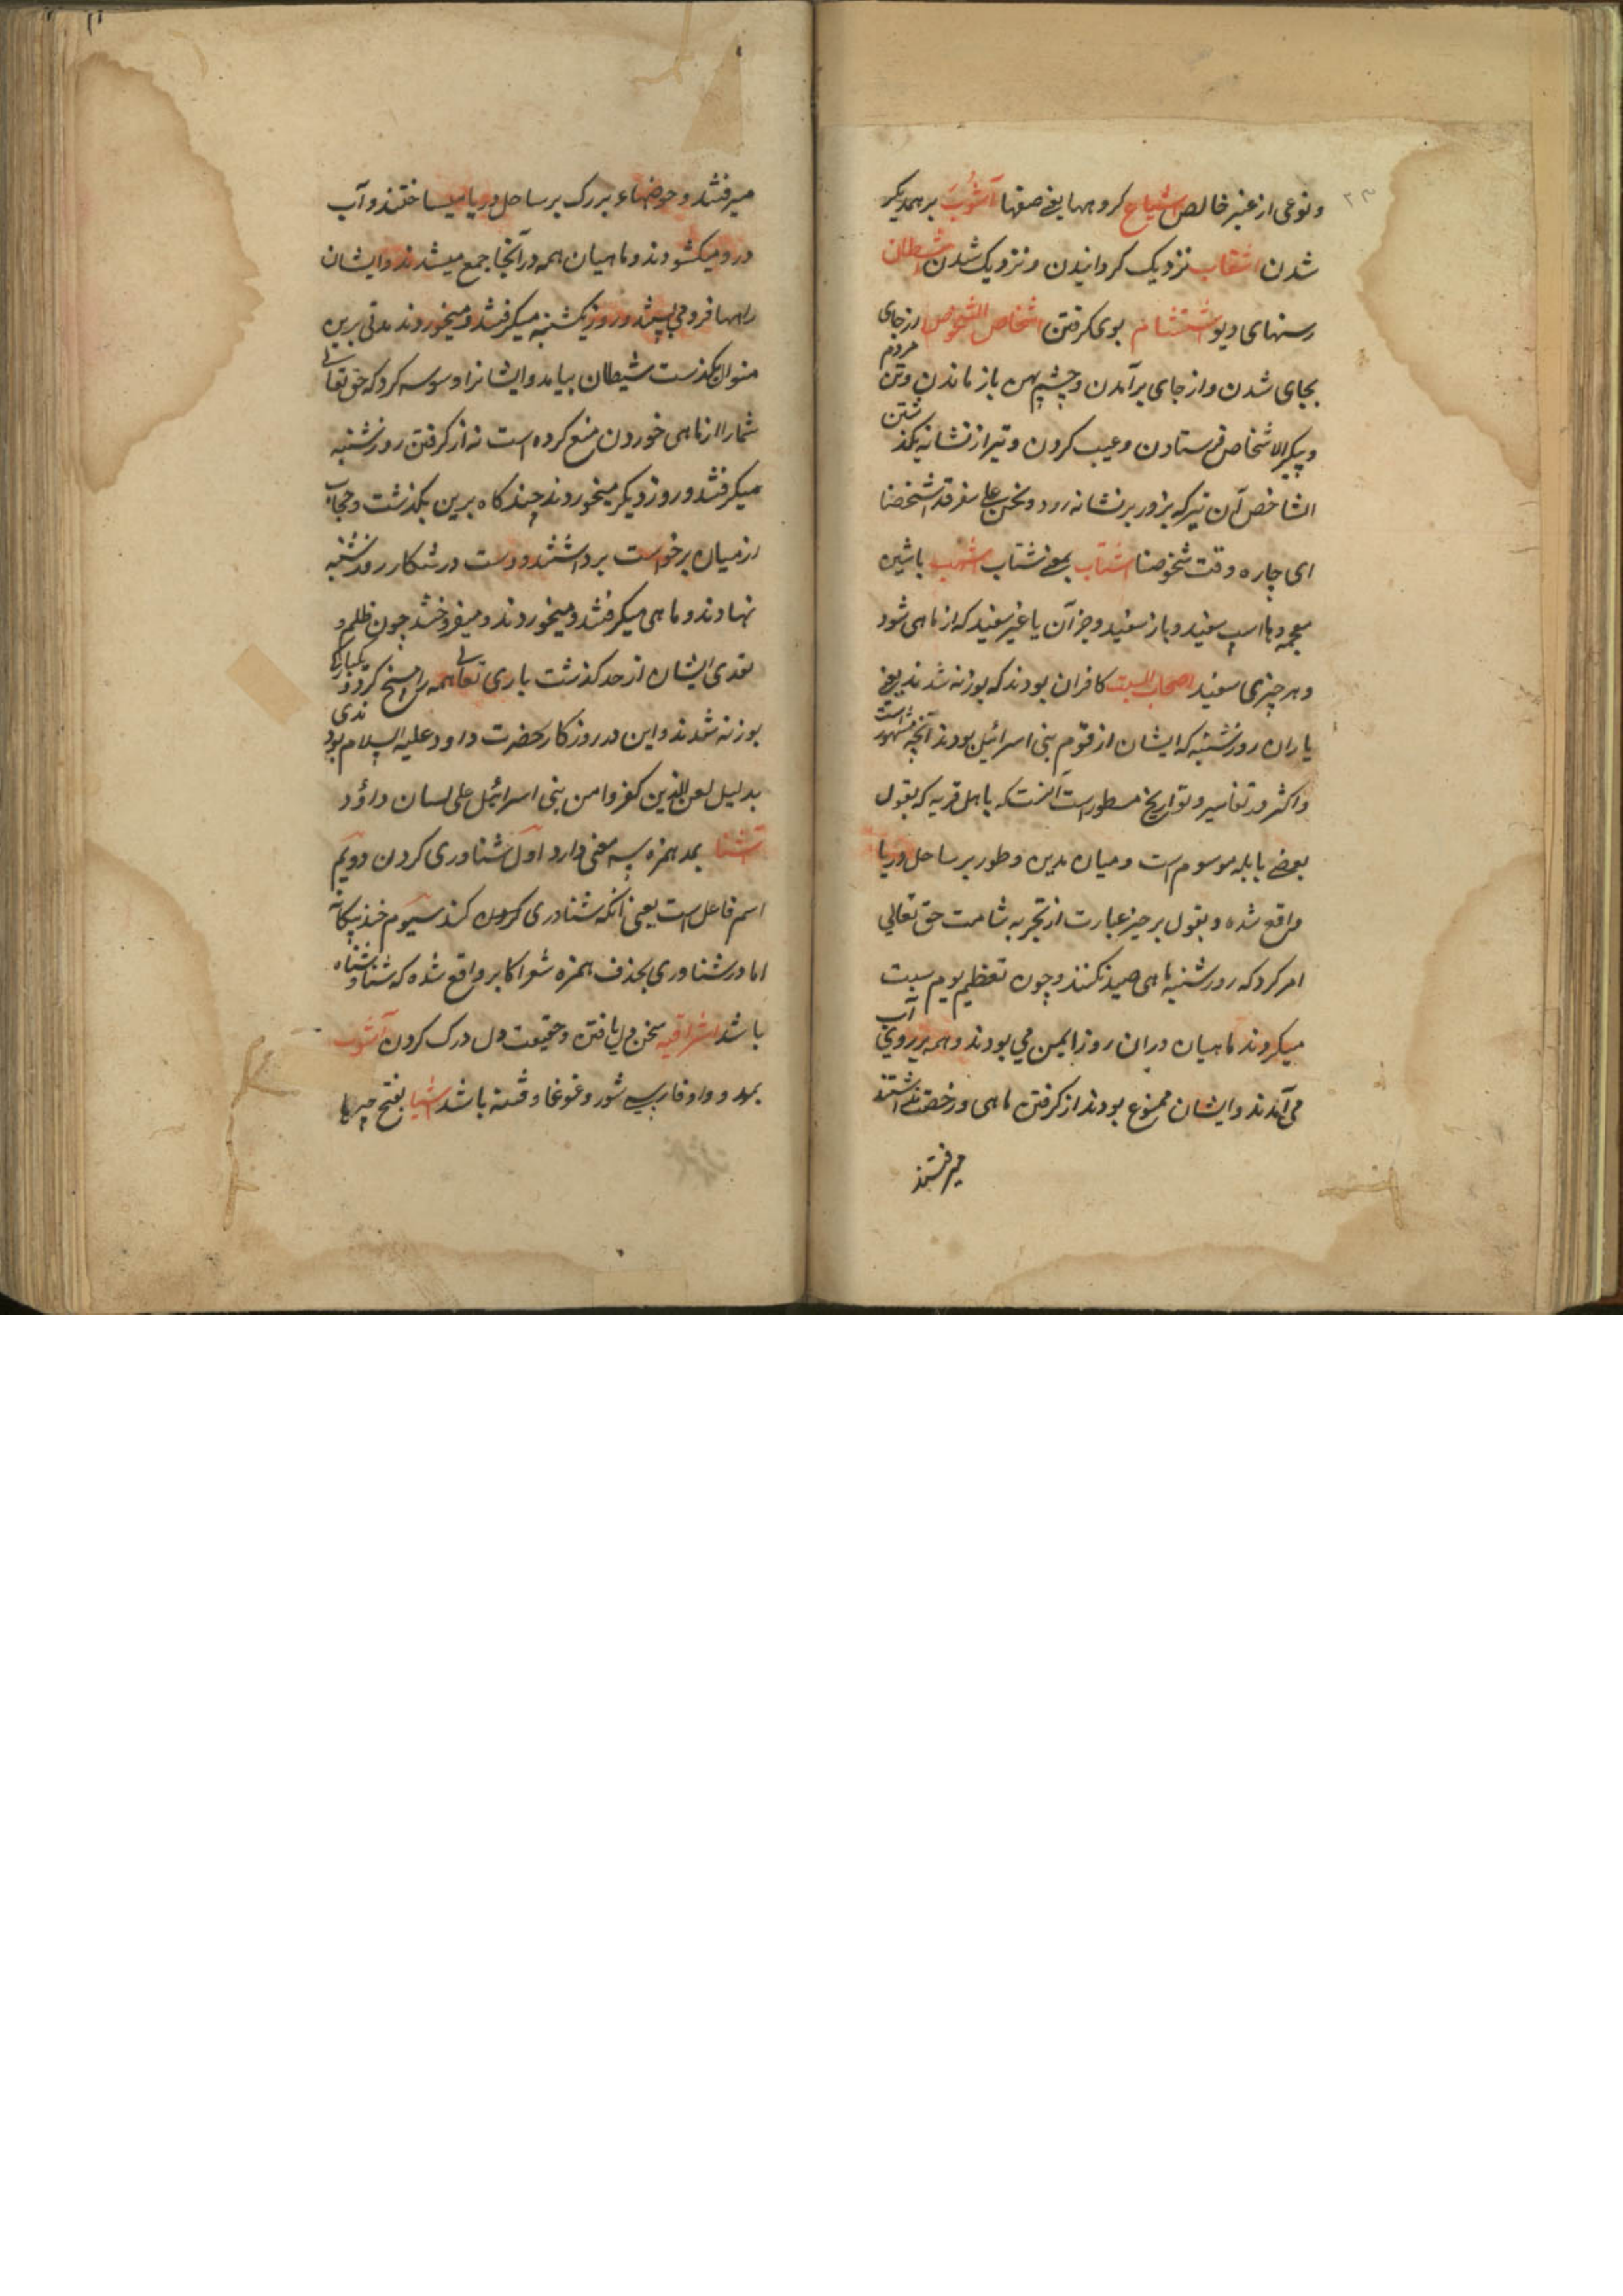 ونوعی از عنبر خالص اشیاع کروهها یعنی صفها آشوب بر همدیکر
شدن اشقاب نزدیک کردانیدن و نزدیک شدن شطان
رسنهای دیو اشتنام بوی کرفتن اشخاص الشخوص از جای
بجای شدن و از جای برآمدن و چشم پهن باز ماندن وتن مردم
وپیکر الاشخاص فرستادن وعیب کردن وتیر از نشانه بکذشتن
الشاخص آن تیر که بزور بر نشانه رود ونحن علی سفر قد اشخصنا
ای جاره وقت شخوصنا اشتاب بمعنی شتاب اشهب باشین
معجمه وبا اسپ سفید وباز سفید وجز آن یا عنبر سفید که از ماهی شود
وهر چیزی سفید اصحاب السبت کافران بودند که بوزنه شدند یعنی
یاران روز شنبه که ایشان از قوم بنی اسرائیل بودند آنچه مشهور است
واکثر در تفاسیر وتواریخ مسطور است آنست که باهل قریه که بقول
بعضی بابله موسوم است ومیان مدین وطور بر ساحل دریا
واقع شده وبقول برخی عبارت از تجربه شامت حق تعالی
امر کرد که روز شنبه ماهی صید نکنند وچون تعظیم یوم سبت
میکردند ماهیان دران روز ایمن می بودند وهمه بر روی آب
می آمدند وایشان ممنوع بودند از کرفتن ماهی ورخصت نداشتند
میرفتند
میرفتند وحوضهاء بزرک بر ساحل دریا میساختند وآب
درو میکشودند وماهیان همه در آنجا جمع میشدند وایشان
راهها فرو می بستند وروز یکشنبه میکرفتند ومیخوردند مدتی برین
منوال بکذشت شیطان بیامد وایشانرا وسوسه کرد که حق تعالی
شمارا از ماهی خوردن منع کرده است نه از کرفتن روز شنبه
میکرفتند وروز دیکر میخوردند چند کاه برین بکذشت وحجاب
از میان برخواست برداشتند ودست در شکار روز شنبه
نهادند وماهی میکرفتند ومیخوردند ومیفروختند چون ظلم و
تعدی ایشان از حد کذشت باری تعالی همه را مسخ کرد
بوزنه شدند واین در روزکار حضرت داود علیه السلام بود
بدلیل لعن الذین کفروا من بنی اسرائیل علی لسان داؤد
آشنا بمد همزه سه معنی دارد اول شناوری کردن دویم
اسم فاعل است یعنی آنکه شناوری کردن کند سیوم ضد بیکانه
اما در شناوری بحذف همزه شعرا کابر واقع شده که شنا وشناه
باشد اشراقیه سخن دل یافتن وحقیقت دل درک کردن آشوب
بمد و واو فارسی شور وغوغا وفتنه باشد اشیا بفتح چیزها